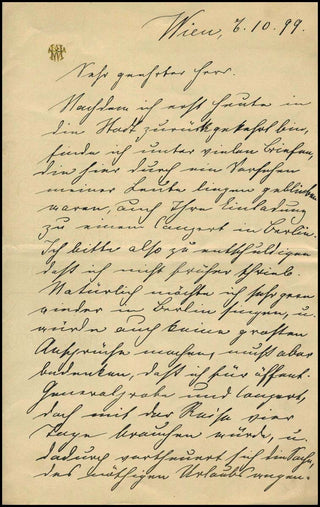 Wien, 6.10.99.
Sehr geehrter Herr.
Nachdem ich erst heute in
die Stadt zurückgekehrt bin,
finde ich unter vielen Briefen,
die hier durch ein Versehen
meiner Leute liegen geblieben
waren, auch Ihre Einladung
zu einem Concert in Berlin.
Ich bitte also zu entschuldigen
daß ich nicht früher schrieb.
Natürlich möchte ich sehr gern
wieder in Berlin singen, u.
würde auch keine großen
Ansprüche machen, muß aber
bedenken, daß ich für öffent.
Generalprobe und Concert,
doch mit der Reise vier
Tage brauchen würde, u.
dadurch vertheuert sich die Sache,
des nöthigen Urlaubs wegen.